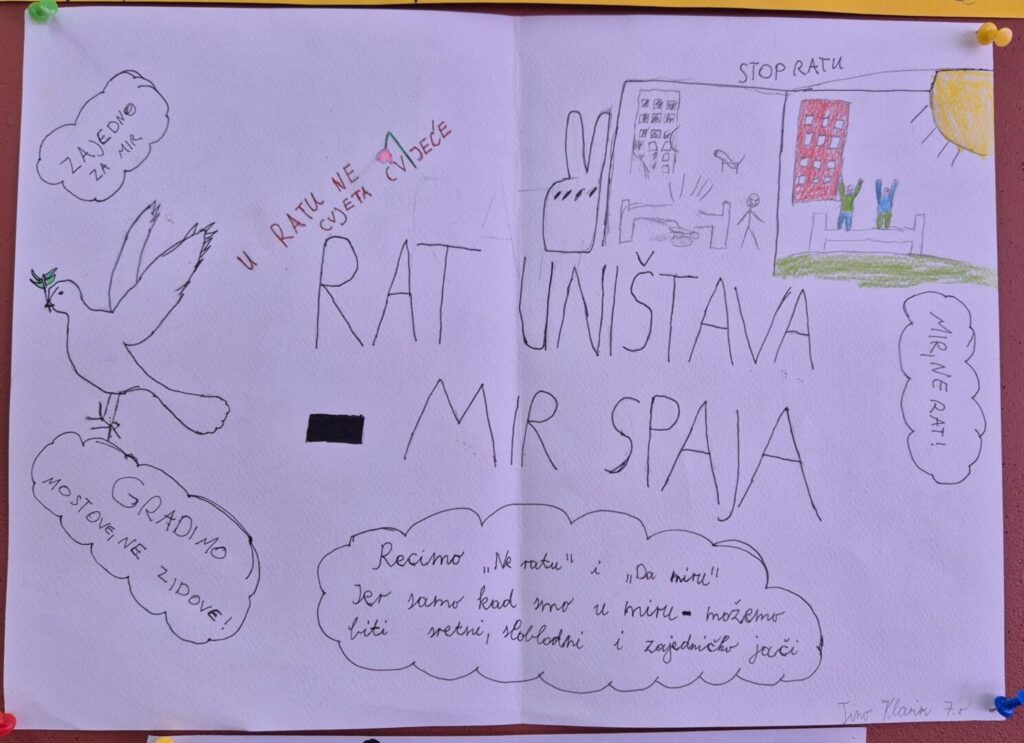 STOP RATU
ZAJEDNO
ZA MIR
U RATU NE
CVJETA CVIJEĆE
RAT UNIŠTAVA
- MIR SPAJA
MIR, NE RAT!
GRADIMO
MOSTOVE, NE ZIDOVE!
Recimo „Ne ratu" i „Da miru"
Jer samo kad smo u miru - možemo
biti sretni, sloblodni i zajedničko jači
7.r